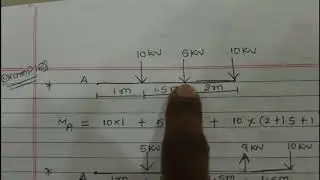 Examples
10KN 5KN 10KN
* A
1m 1.5m 2m
M_A = 10×1 + 5 + 10×(2+1.5+1
5KN 9KN 10KN
* A
1m 1.5m